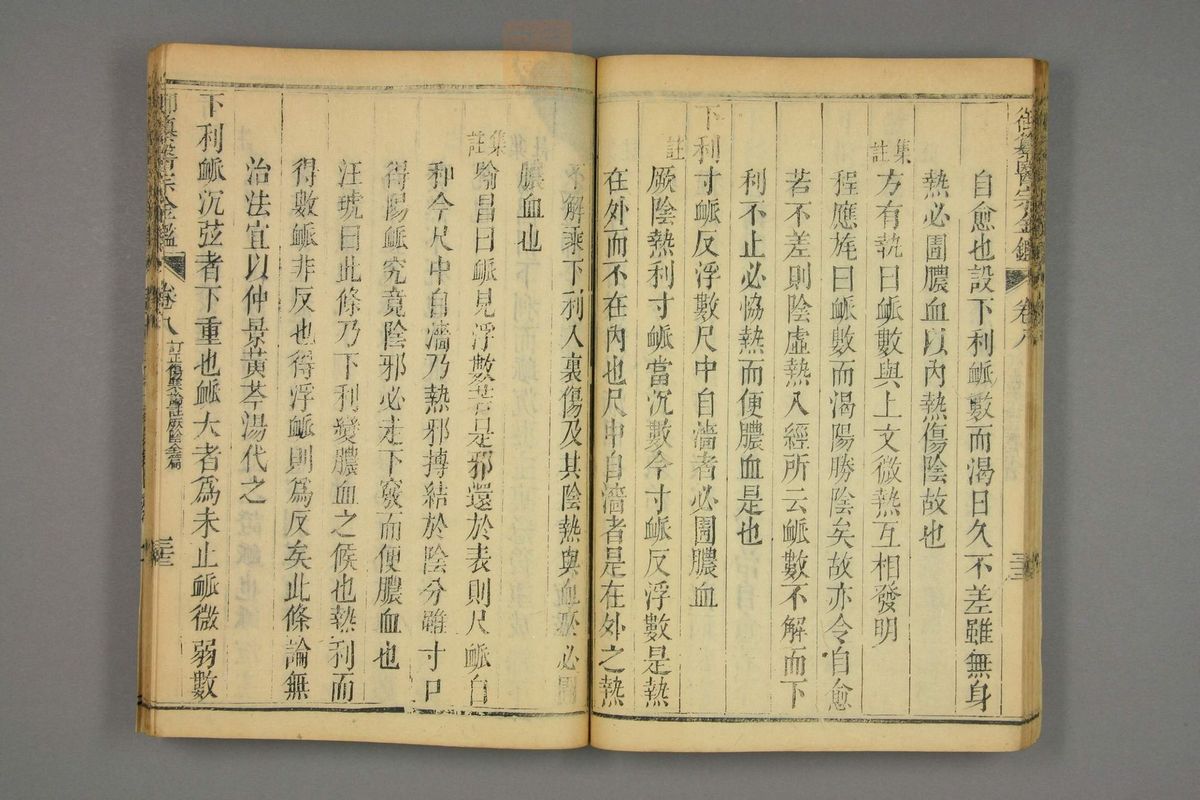 御纂醫宗金鑑 卷八 三三
自愈也設下利脈數而渴日久不差雖無身
熱必圊膿血以內熱傷陰故也
集註
方有執曰脈數與上文微熱互相發明
程應旄曰脈數而渴陽勝陰矣故亦令自愈
若不差則陰虛熱入經所云脈數不解而下
利不止必協熱而便膿血是也
下利寸脈反浮數尺中自濇者必圊膿血
註
厥陰熱利寸脈當沉數今寸脈反浮數是熱
在外而不在內也尺中自濇者是在外之熱
不解乘下利入裏傷及其陰熱與血瘀必圊
膿血也
集註
喻昌曰脈見浮數若是邪還於表則尺脈自
和今尺中自濇乃熱邪摶結於陰分雖寸口
得陽脈究竟陰邪必走下竅而便膿血也
汪琥曰此條乃下利變膿血之候也熱利而
得數脈非反也得浮脈則為反矣此條論無
治法宜以仲景黃芩湯代之
下利脈沉弦者下重也脈大者為未止脈微弱數
御纂醫宗金鑑 卷八 訂正傷寒論註厥陰全篇